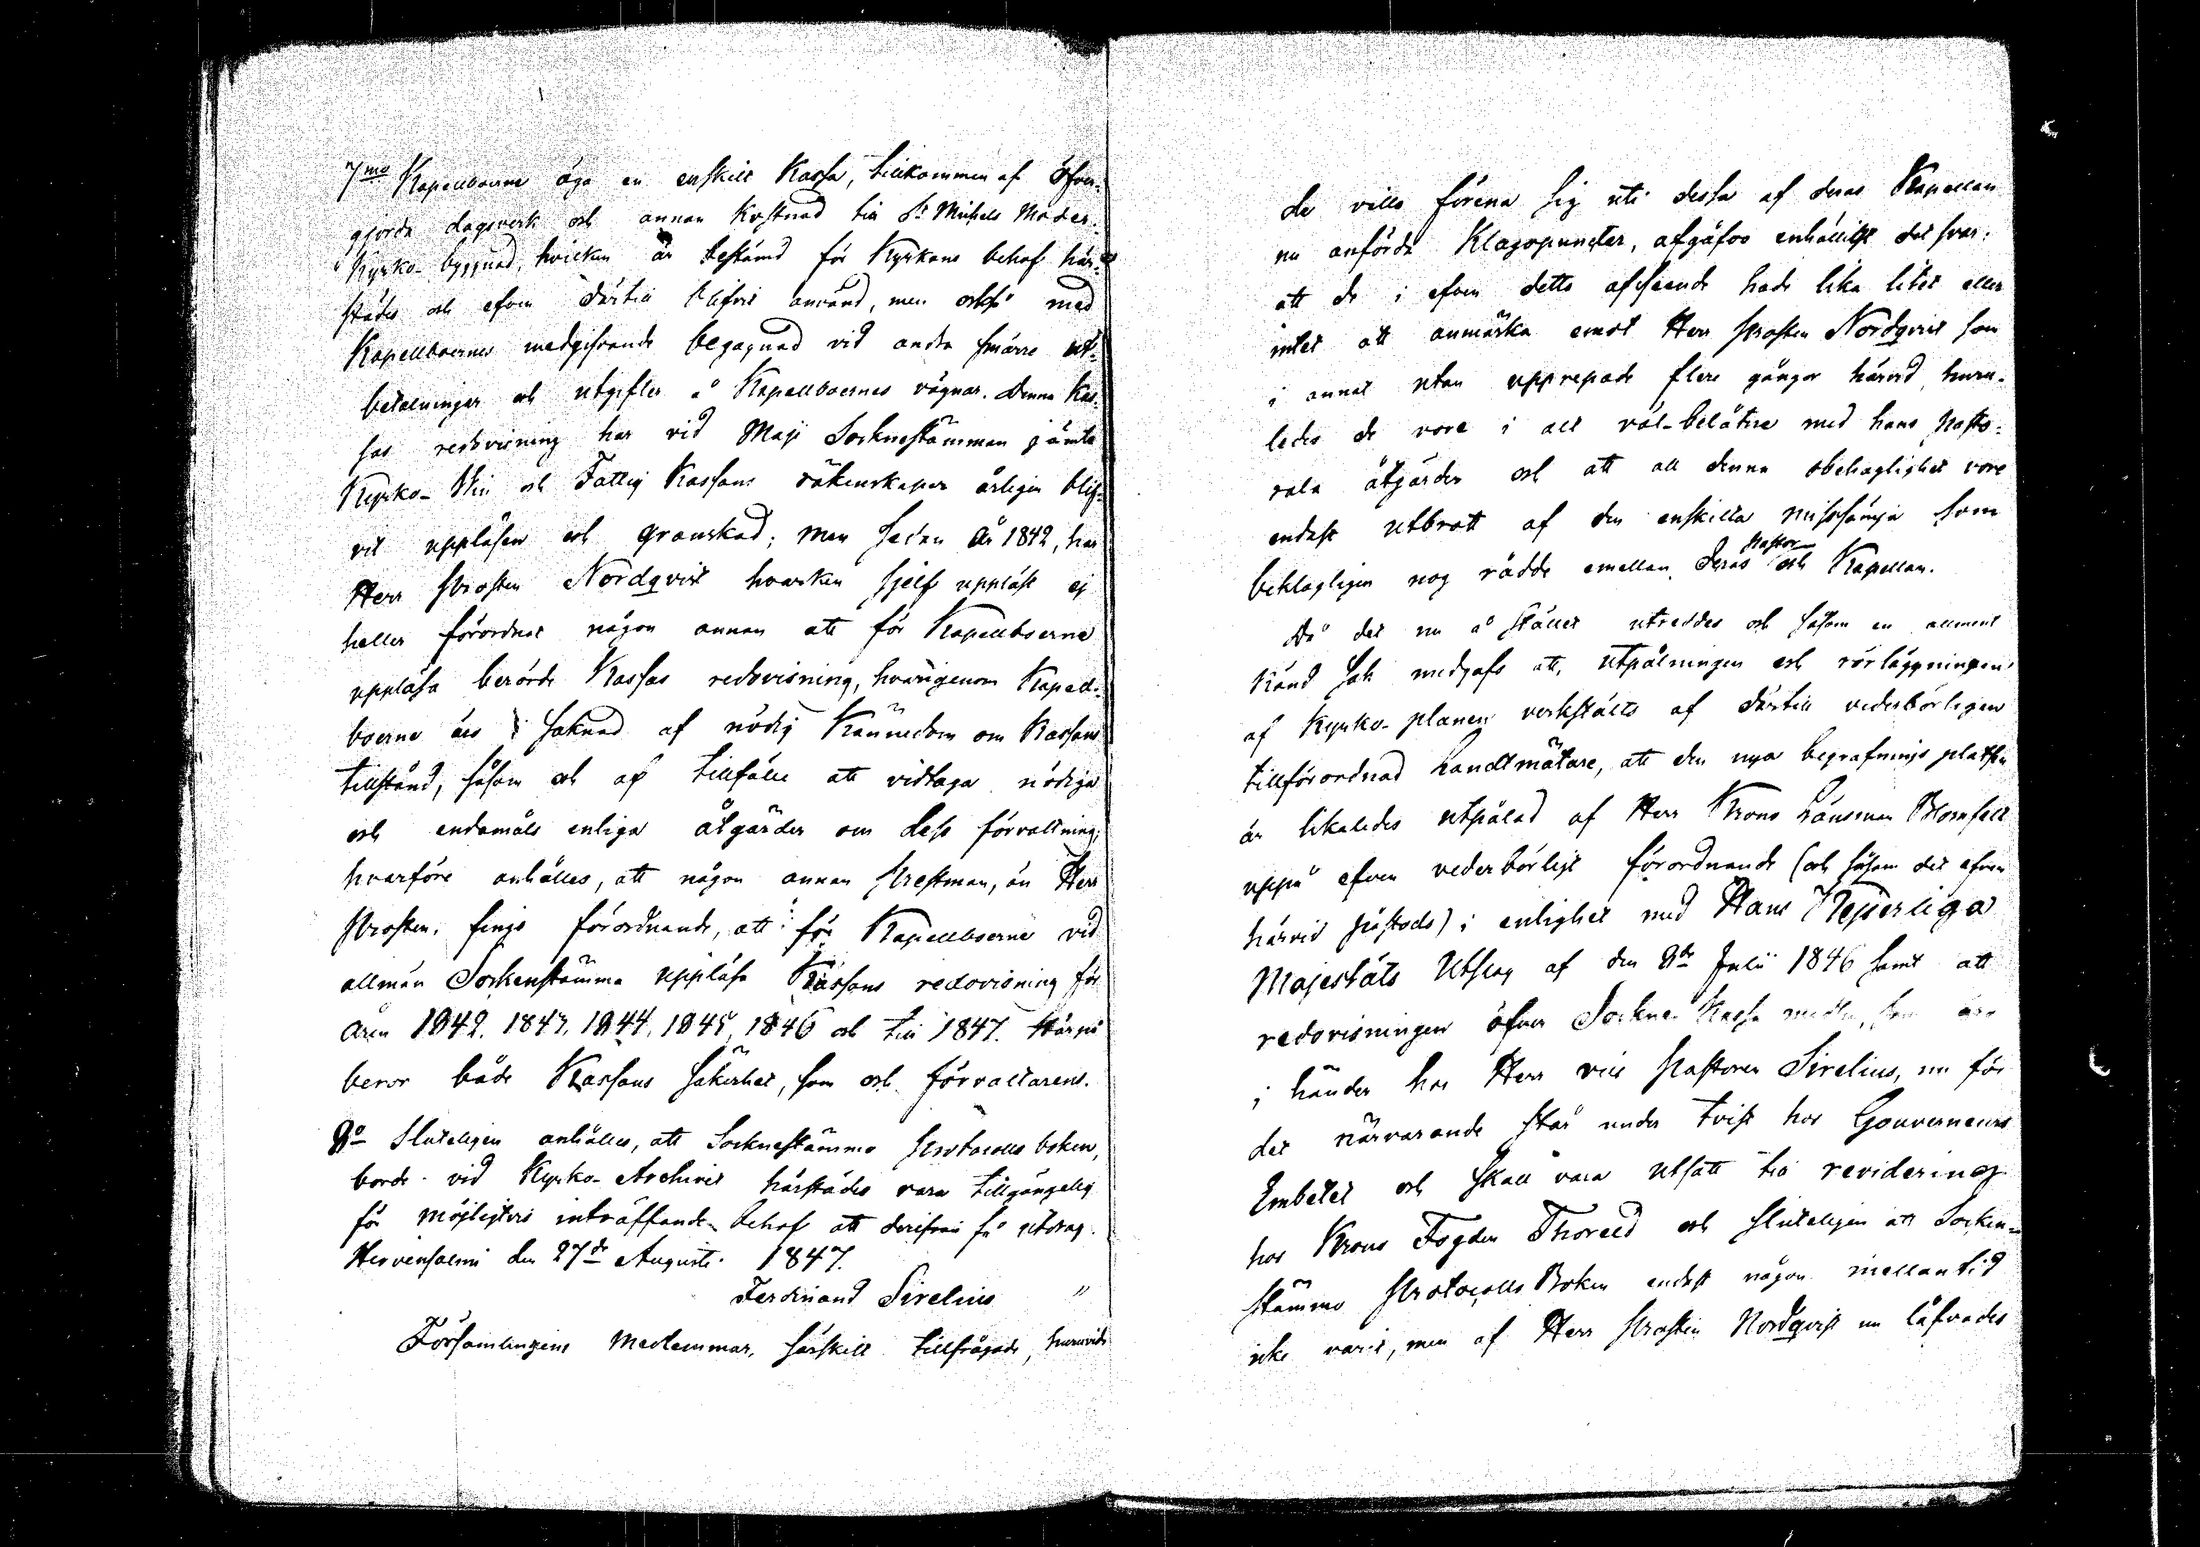 7mo Kapellboerne äga en enskilt Kassa, tillkommen af öfver-
gjorda dagsverk och annan kostnad till St Michels Moder-
Kyrko-byggnad, hvilken är bestämd för Kyrkans behof här-
städes och efven dertill blifvit använd, men också med
Kapellboernes medgifvande begagnad vid andra smärre ut-
betalningar och utgifter å Kapellboernes vägnar. Denna Kas-
sas redovisning har vid Maji Socknestämman jämte
Kyrko- Vin och Fattig Kassans räkenskaper årligen blif-
vit uppläsen och granskad; men sedan år 1842, har
Herr Prosten Nordqvist hvarken sjelf uppläst ej
heller förordnat någon annan att för Kapellboerne
uppläsa berörde Kassas redovisning, hvarigenom Kapell-
boerne äro i saknad af nödig Kännedom om Kassans
tillstånd, såsom och af tillfälle att vidtaga nödiga
och endamåls enliga åtgärder om dess förvaltning,
hvarföre anhålles, att någon annan Prestman, än Herr
Prosten, finge förordnande, att för Kapellboerne vid
allmän Sockenstämma uppläsa Kassans redovisning för
åren 1842. 1843. 1844. 1845, 1846 och till 1847. Härpå
beror både Kassans säkerhet, som och förvaltarens.
8o Slutligen anhålles, att Socknestämmo Protocolls boken,
borde vid Kyrko-Archivet härstädes vara tillgängelig
för möjligtvis inträffande behof att derifrån få utdrag.
Hirvensalmi den 27de Augusti 1847.
Ferdinand Sirelius
Församlingens Medlemmar, särskilt tillfrågade, huruvida
de ville förena sig uti dessa af deras Kapellan
nu anförda Klagopuncter, afgåfvo enhälligt det svar:
att de i efven detta afseende hade lika litet eller
intet att anmärka emot Herr Prosten Nordqvist som
i annat utan upprepade flere gånger härvid, huru-
ledes de vore i allt väl-belåtne med hans Pasto-
rala åtgärder och att all denna obehaglighet vore
endast utbrott af den enskilta misssämja som
beklagligen nog rådde emellan deras Pastor och Kapellan.
Då det nu å stället utreddes och såsom en allmänt
känd sak medgafs att, utpålningen och rörläggningen
af Kyrko-planen verkstälts af dertill vederbörligen
tillförordnad Landtmätare, att den nya begrafnings platsen
är likaledes utpålad af Herr Krono Länsman Blomfelt
uppå efven vederbörligt förordnande (och såsom det efven
härvid påstods) i enlighet med Hans Kejserliga
Majestäts Utslag af den 8de Julii 1846 samt att
redovisningen öfver Sockne-Kassa medlen, som äro
i händer hos Herr vice Pastoren Sirelius, nu för
det närvarande står under tvist hos Gouverneurs
Embetet och skall vara utsatt till revidering
hos Krono Fogden Thoreld och slutligen att Socken-
stämmo Protocolls Boken endast någon mellantid
icke varit, men af Herr Prosten Nordqvist nu låfvades